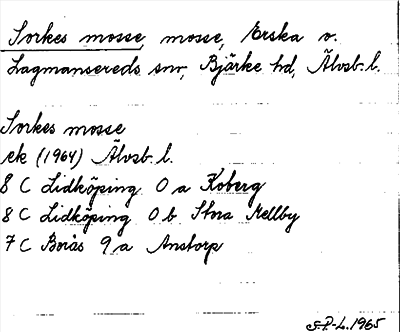 Torkes mosse, mosse, Erska o.
Lagmansereds snr, Bjärke hd, Älvsb. l.
Torkes mosse
ek (1964) Älvsb. l.
8 C Lidköping 0 a Koberg
8 C Lidköping 0 b Stora Mellby
7 C Borås 9 a Anstorp
S-P-L. 1965